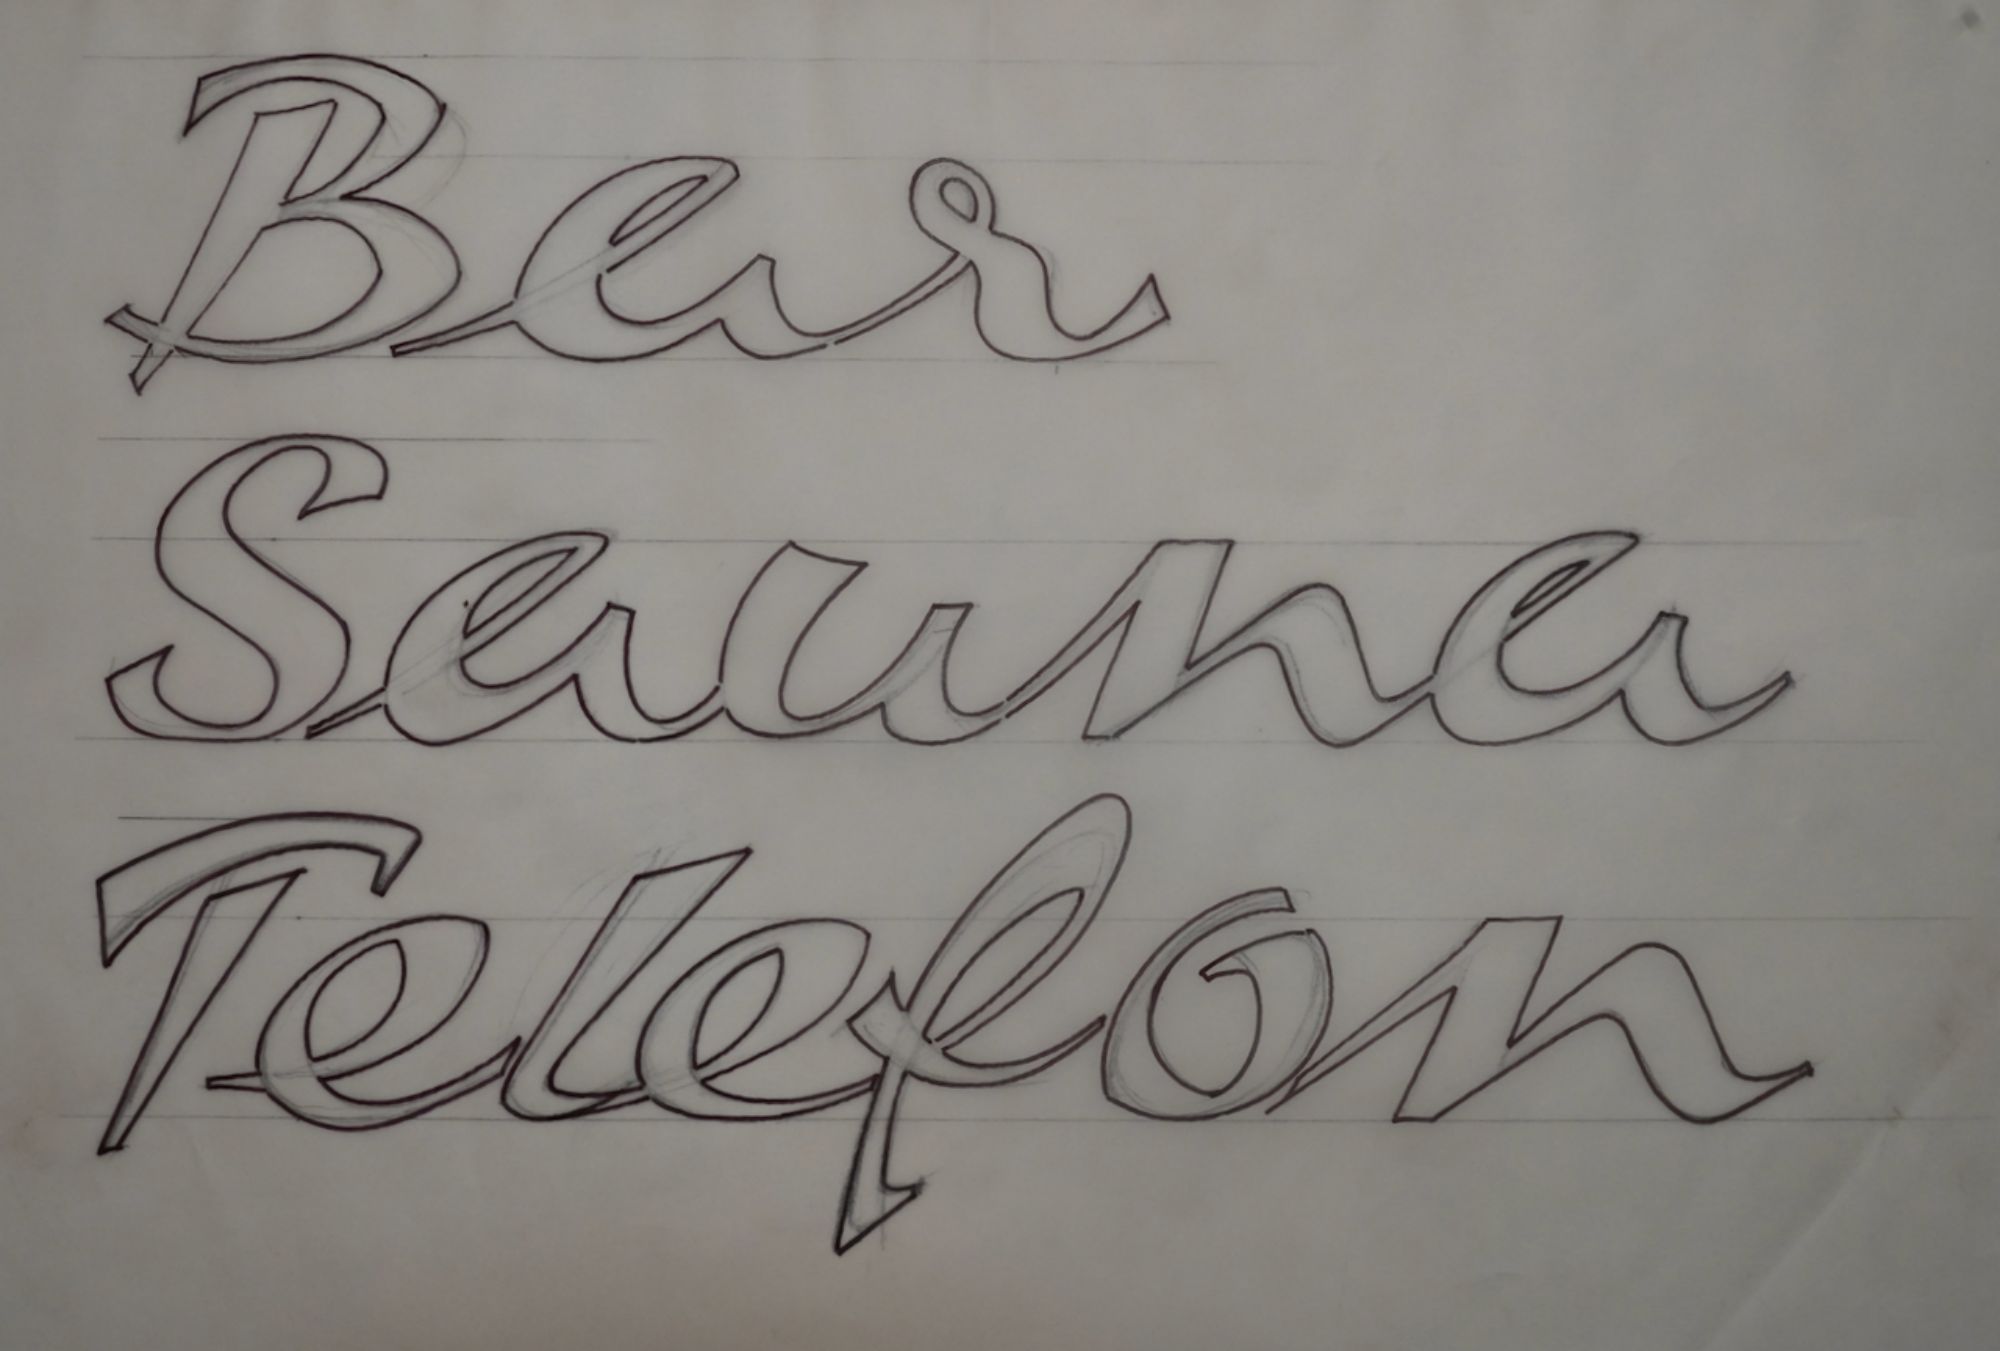 Bar
Sauna
Telefon